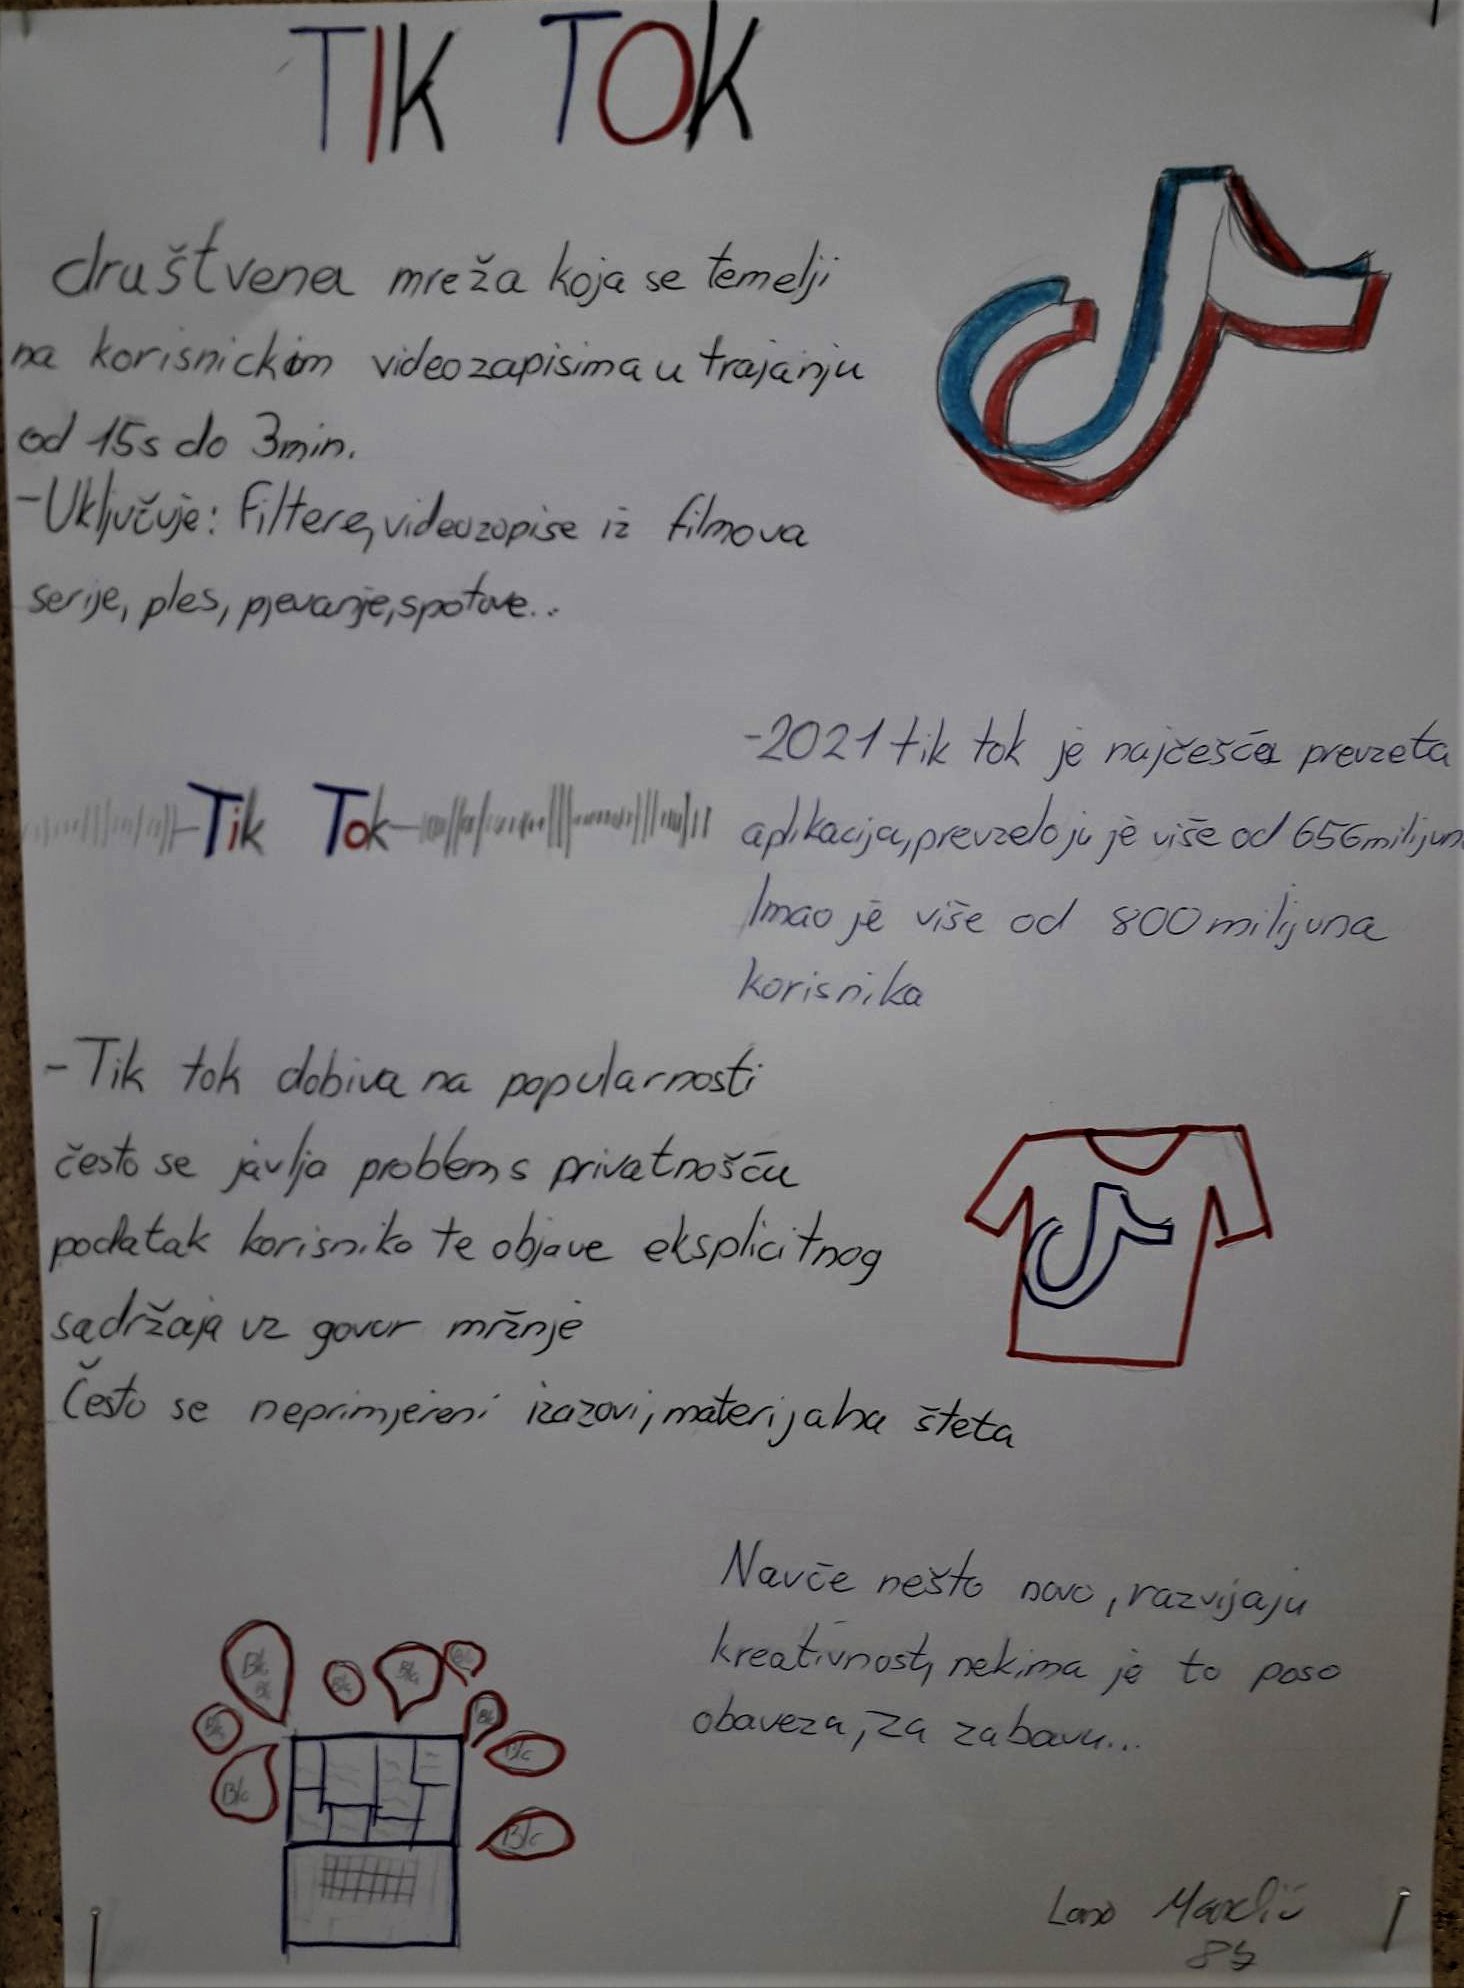 TIK TOK
društvena mreža koja se temelji
na korisničkim videozapisima u trajanju
od 15s do 3min.
-Uključuje: Filtere, videozapise iz filmova
serije, ples, pjevanje, spotove...
-2021 tik tok je najčešća preuzeta
Tik Tok
aplikacija, preuzelo ju je više od 656 milijun
Imao je više od 800 milijuna
korisnika
-Tik tok dobiva na popularnosti
često se javlja problem s privatnošću
podatak korisnika te objave eksplicitnog
sadržaja uz govor mržnje
Često se neprimjereni izazovi, materijalna šteta
Nauče nešto novo, razvijaju
kreativnost, nekima je to posao
obaveza, za zabavu...
Bla
Bla
Bla
Bla
Bla
Bla
Bla
Bla
Bla
Bla